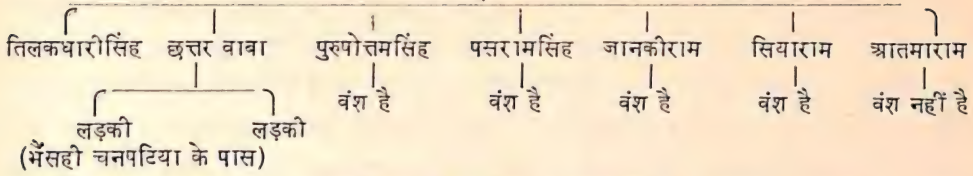 तिलकधारीसिंह छत्तर वाबा पुरुषोत्तमसिंह पसरामसिंह जानकीराम सियाराम आतमाराम
वंश है वंश है वंश है वंश है वंश नहीं है
लड़की लड़की
(भैंसही चनपटिया के पास)